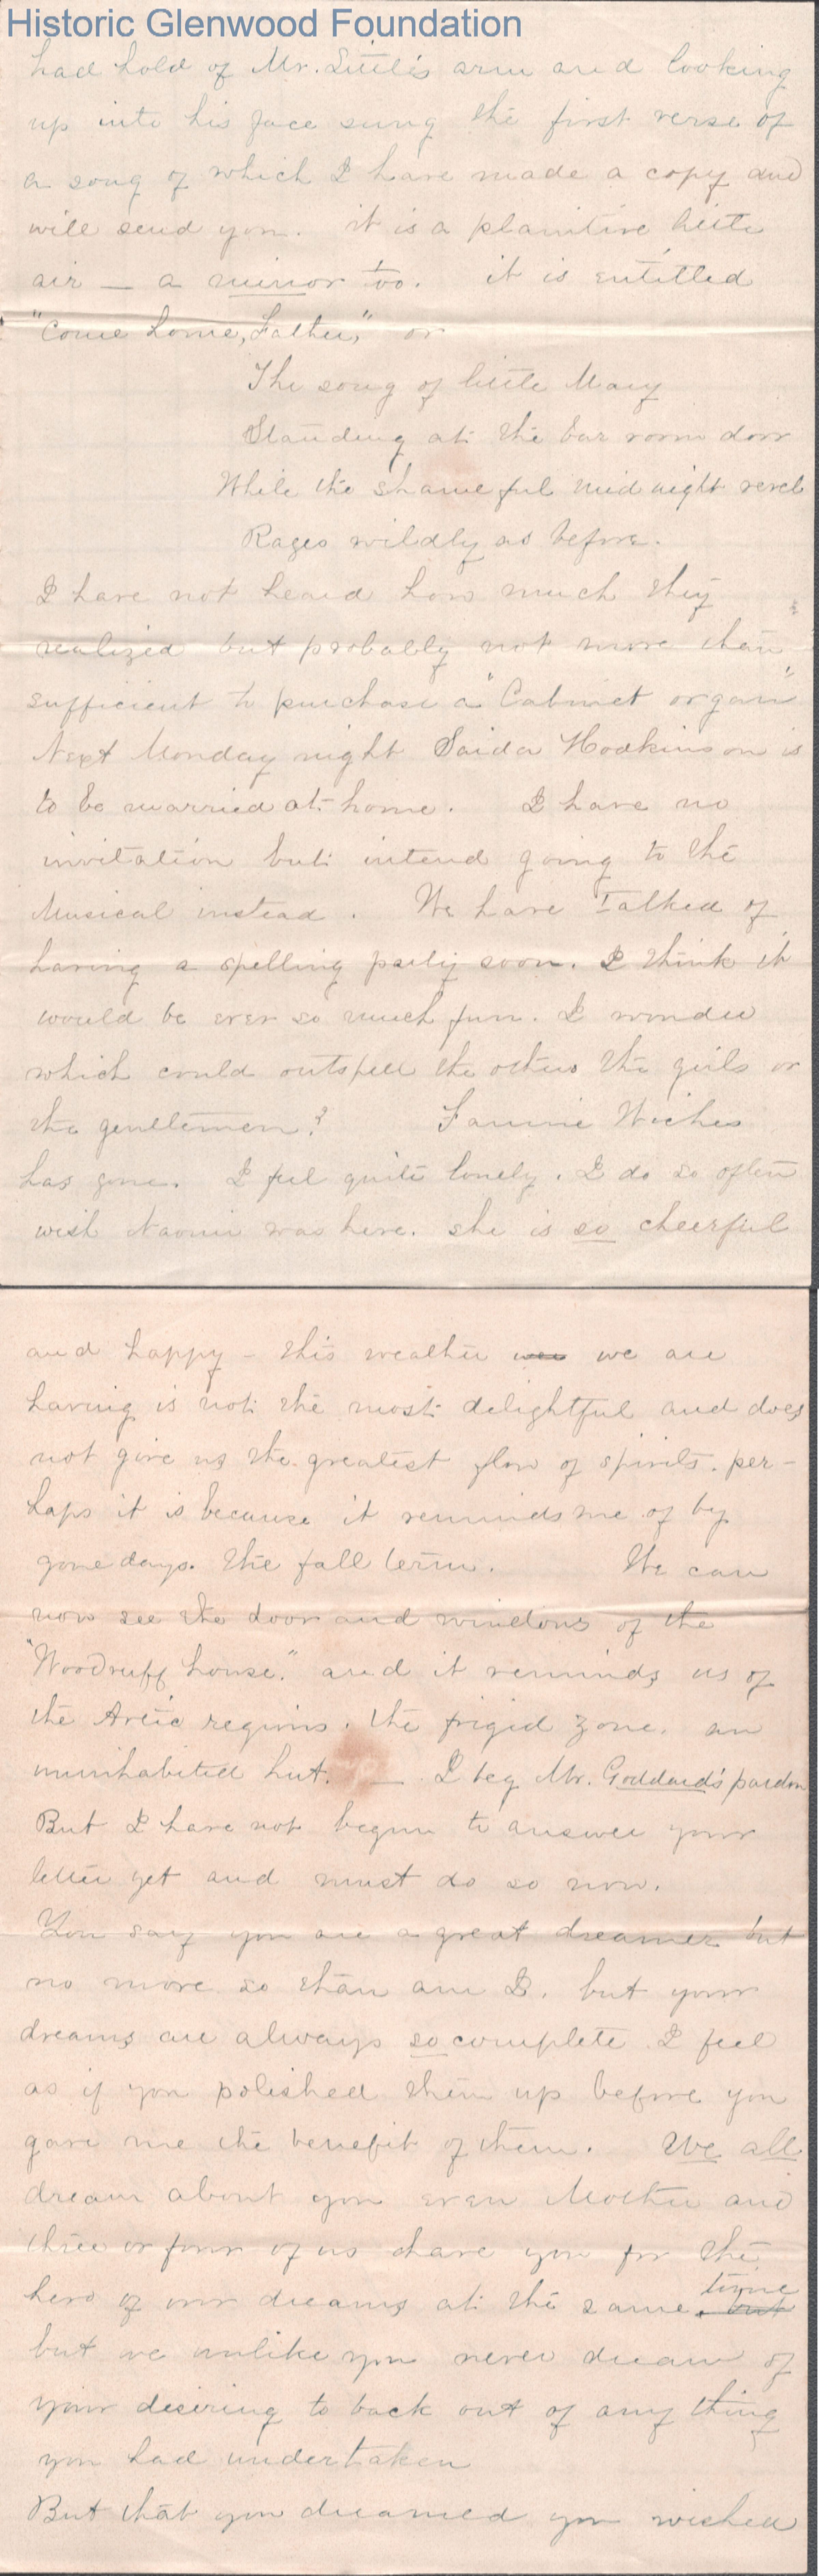 Historic Glenwood Foundation
had hold of Mr. Little's arm and looking
up into his face sung the first verse of
a song of which I have made a copy and
will send you. it is a plaintive little
air — a minor too. it is entitled
"Come home, Father," or
The song of little Mary
Standing at the bar room door
While the shameful midnight revel
Rages wildly as before.
I have not heard how much they
realized but probably not more than
sufficient to purchase a "Cabinet organ"
Next Monday night Saida Hodkinson is
to be married at home. I have no
invitation but intend going to the
Musical instead. We have Talked of
having a spelling party soon. I think it
would be ever so much fun. I wonder
which could outspell the others the girls or
the gentlemen? Fannie
has gone. I feel quite lonely. I do so often
wish Naomi was here. she is so cheerful
and happy – this weather we are
having is not the most delightful and does
not give us the greatest flow of spirits. per-
haps it is because it reminds me of by
gone days. the fall term. We can
now see the door and windows of the
"Woodruff house." and it reminds us of
the Artic regions. the frigid zone. an
uninhabited hut. — I beg Mr. Goddard's pardon
But I have not begun to answer your
letter yet and must do so now.
You say you are a great dreamer but
no more so than am I. but your
dreams are always so complete I feel
as if you polished them up before you
gave me the benefit of them. We all
dream about you even Mother and
three or four of us share you for the
hero of our dreams at the same time. but
but we unlike you never dream of
your desiring to back out of any thing
you had undertaken
But that you dreamed you wished